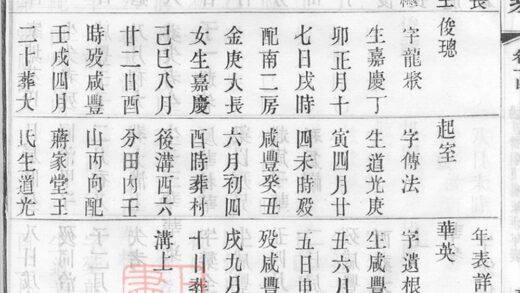 俊璁
字龍
生嘉慶丁
卯正月十
七日戌時
配南二房
金庚大長
女生嘉慶
己巳八月
廿二日酉
時歿咸豐
壬戌四月
三十葬大
起室
字傳法
生道光庚
寅四月廿
四未時歿
咸豐癸丑
六月初四
酉時葬村
後溝西六
分田丙壬
山丙向配
蔣家堂王
氏生道光
年表詳
華英
字遺根
生咸豐
丑六月
五日申
歿咸豐
戌九月
十日葬
溝上